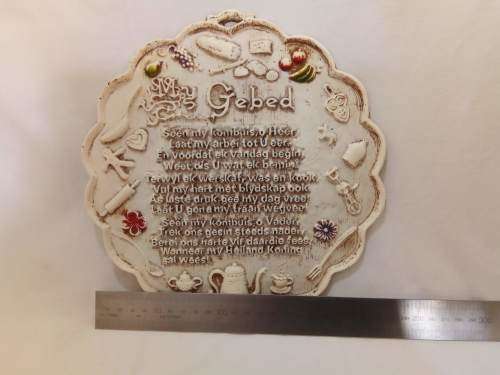 My Gebed
Seën my kombuis, o Heer,
Laat my arbei tot U eer.
En voordat ek vandag begin,
Weet dis U wat ek bemin.
Terwyl ek werskaf, was en kook,
Vul my hart met blydskap ook.
As laste druk gee my dag vrees
Laat U gone my traan wegvee.
Seën my kombuis, o Vader,
Trek ons gesin steeds nader,
Berei ons harte vir daardie fees,
Wanneer my Heiland Koning
sal wees!